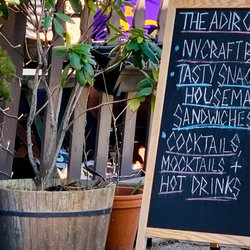 THE ADIRO
NY CRAFT B
TASTY SNA
HOUSEMA
SANDWICHES
COCKTAILS
MOCKTAILS +
HOT DRINKS